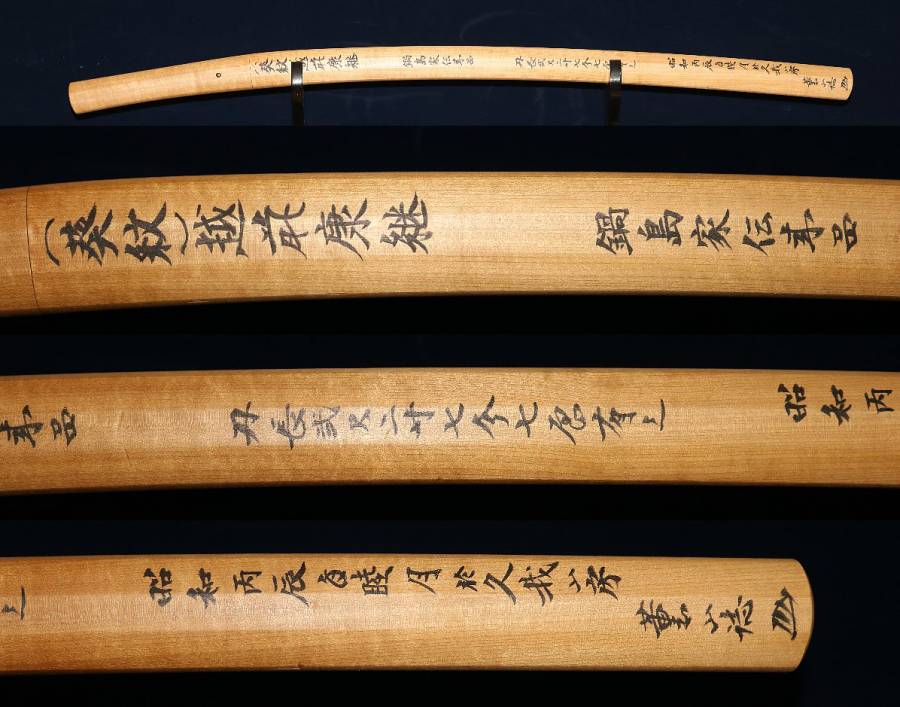 (葵紋)越前康継
鍋島家伝来品
刃長弐尺二寸七分七厘有之
昭和丙辰睦月於久我山房
薫山誌